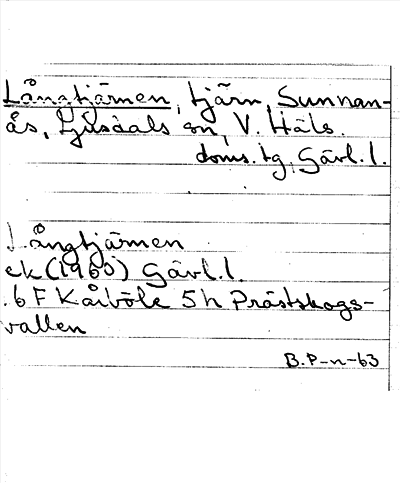 Långtjärnen, tjärn, Sunnan-
ås, Ljusdals sn, V. Häls.
doms. tg, Gävl. l.
Långtjärnen
ek (1960) Gävl. l.
16 F Kårböle 5 h Prästskogs-
vallen
B.P-n-63